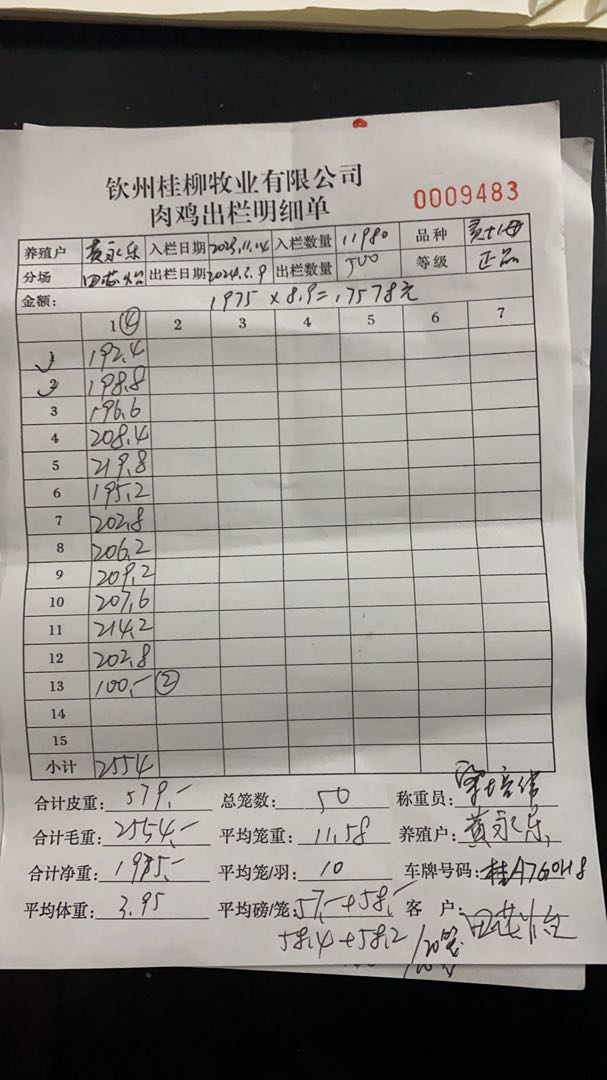 钦州桂柳牧业有限公司
肉鸡出栏明细单 0009483
养殖户 黄永乐 入栏日期 2023.11.14 入栏数量 11980 品种
分场 出栏日期 2024.2.9 出栏数量 500 等级 正品
金额: 1975 × 8.9 = 17578元
1 ④ 2 3 4 5 6 7
1 192.4
2 198.8
3 196.6
4 208.4
5 219.8
6 195.2
7 202.8
8 206.2
9 209.2
10 207.6
11 214.2
12 202.8
13 100.- ②
14
15
小计 2554
合计皮重: 579.- 总笼数: 50 称重员:
合计毛重: 2554.- 平均笼重: 11.58 养殖户: 黄永乐
合计净重: 1975.- 平均笼/羽: 10 车牌号码: 桂A7G0H8
平均体重: 3.95 平均磅/笼: 57.-+58.- 客 户:
58.4+58.2 /20笼